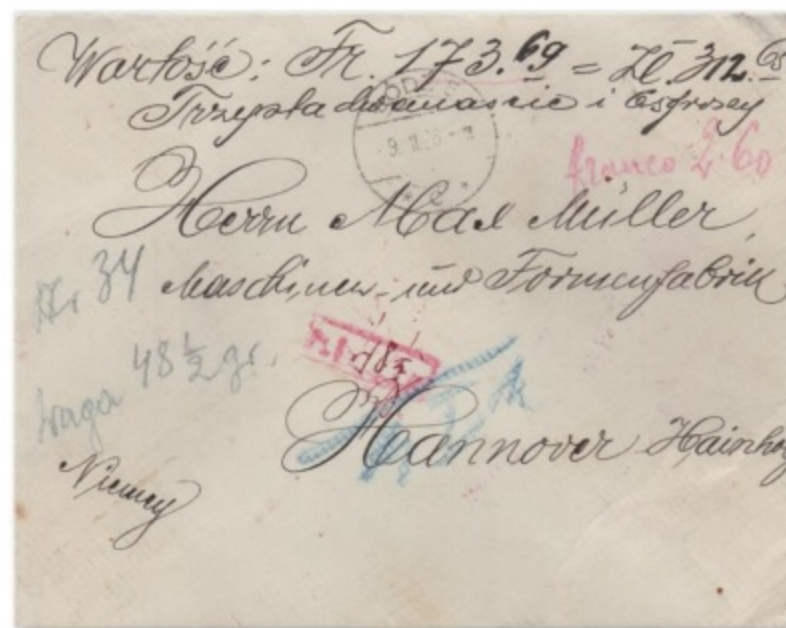 Wartość: Fr. 173.69 = Zł. 312.
Trzysta dwanaście i groszy
franco 2.60
Herrn Max Müller,
Maschinen- und Formenfabrik
Nr 34
waga 48 1/2 gr.
Hannover Hainholz
Niemcy